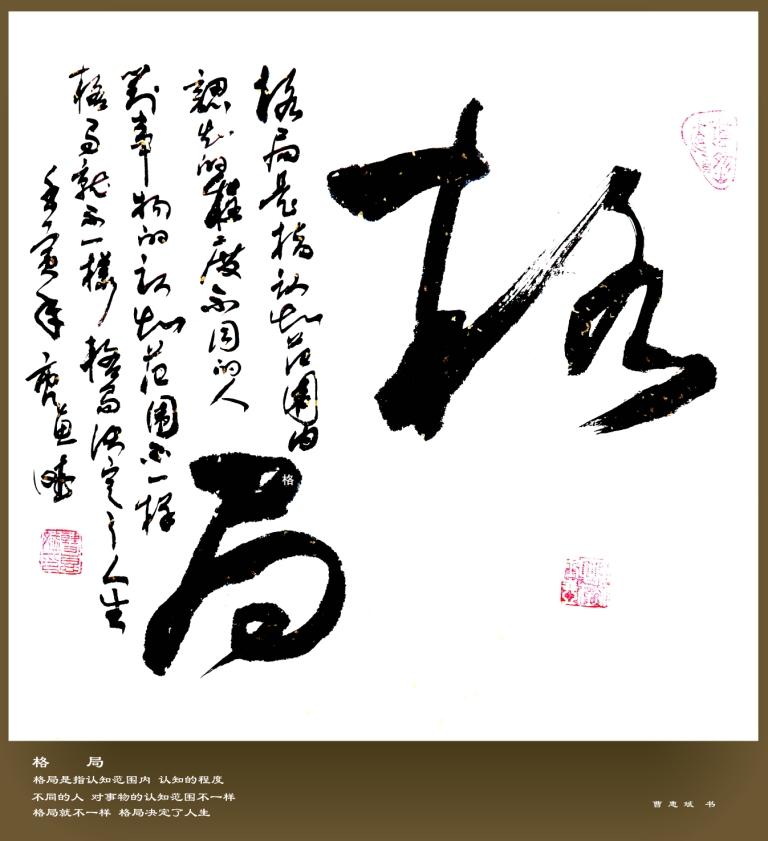 格
局
格局是指认知范围内
認知的程度不同的人
對事物的认知范围不一样
格局就不一樣 格局决定了人生
壬寅年
格
格 局
格局是指认知范围内 认知的程度
不同的人 对事物的认知范围不一样
格局就不一样 格局决定了人生
曹惠斌 书